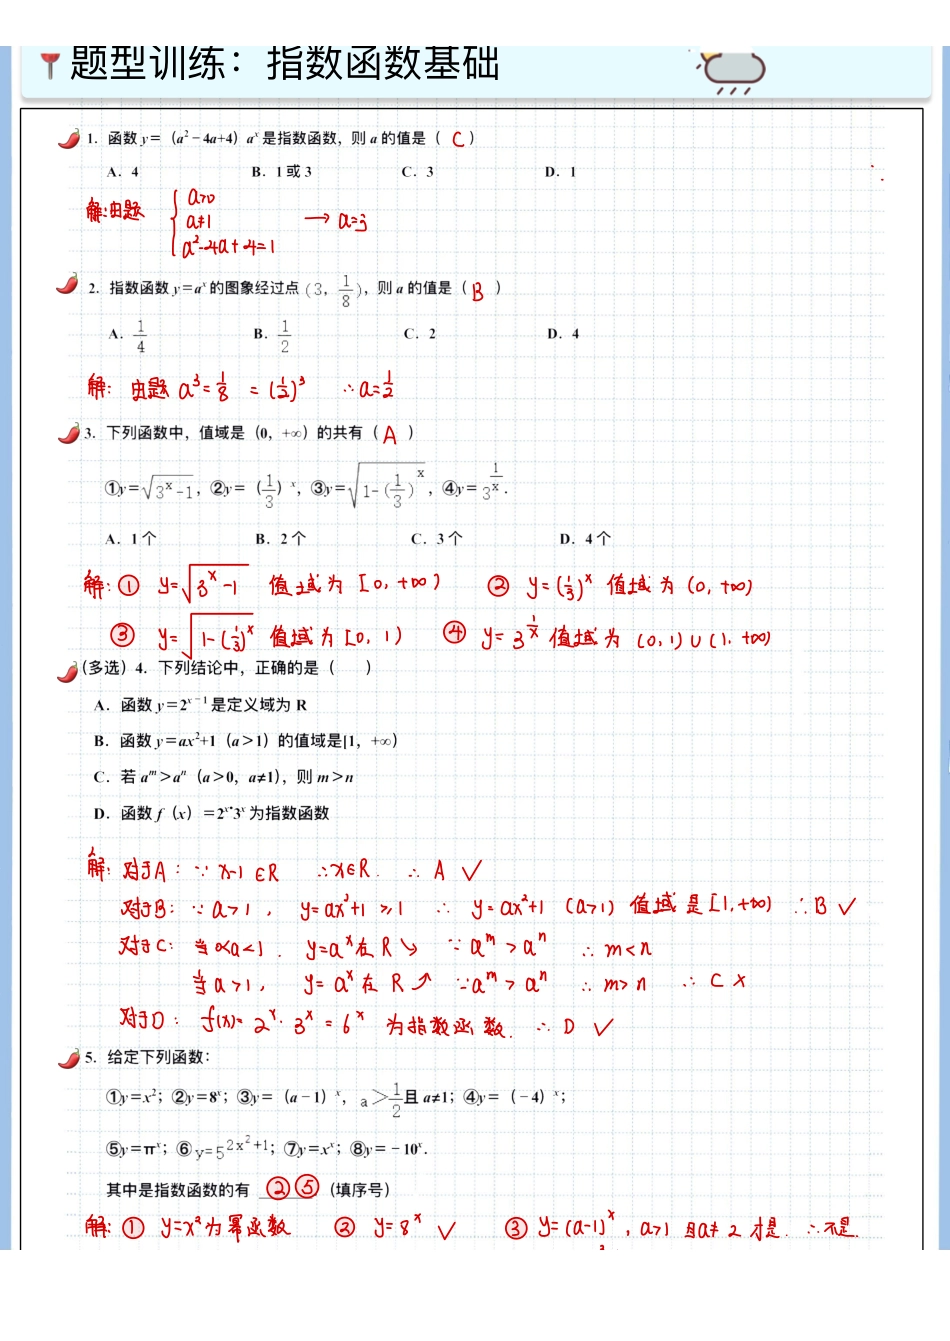 题型训练：指数函数基础
1．函数 y＝（a²－4a+4）aˣ 是指数函数，则 a 的值是（ C ）
A．4 B．1 或 3 C．3 D．1
解：由题 { a>0
a≠1 → a=3
a²-4a+4=1
2．指数函数 y＝aˣ 的图象经过点（3，1/8），则 a 的值是（ B ）
A．1/4 B．1/2 C．2 D．4
解：由题 a³=1/8 =(1/2)³ ∴a=1/2
3．下列函数中，值域是（0，+∞）的共有（ A ）
①y＝√(3ˣ-1)，②y＝（1/3）ˣ，③y＝√(1-(1/3)ˣ)，④y＝3^(1/x)．
A．1 个 B．2 个 C．3 个 D．4 个
解：① y=√(3ˣ-1) 值域为 [0,+∞) ② y=(1/3)ˣ 值域为 (0,+∞)
③ y=√(1-(1/3)ˣ) 值域为 [0,1) ④ y=3^(1/x) 值域为 (0,1)∪(1,+∞)
（多选）4．下列结论中，正确的是（ ）
A．函数 y＝2ˣ⁻¹ 是定义域为 R
B．函数 y＝ax²+1（a＞1）的值域是[1，+∞）
C．若 aᵐ＞aⁿ（a＞0，a≠1），则 m＞n
D．函数 f（x）＝2ˣ•3ˣ 为指数函数
解：对于A：∵x-1∈R ∴x∈R. ∴A ✓
对于B：∵a>1, y=ax²+1≥1 ∴ y=ax²+1 (a>1) 值域是[1,+∞) ∴B ✓
对于C：当0<a<1. y=aˣ在R↘ ∵aᵐ>aⁿ ∴m<n
当a>1, y=aˣ在R↗ ∵aᵐ>aⁿ ∴m>n ∴C ×
对于D：f(x)=2ˣ·3ˣ=6ˣ 为指数函数. ∴D ✓
5．给定下列函数：
①y＝x²；②y＝8ˣ；③y＝（a－1）ˣ，a＞1/2且 a≠1；④y＝（－4）ˣ；
⑤y＝πˣ；⑥y=5^(2x²+1)；⑦y＝xˣ；⑧y＝－10ˣ．
其中是指数函数的有 ②⑤ （填序号）
解：① y=x²为幂函数 ② y=8ˣ ✓ ③ y=(a-1)ˣ, a>1且a≠2才是. ∴不是.